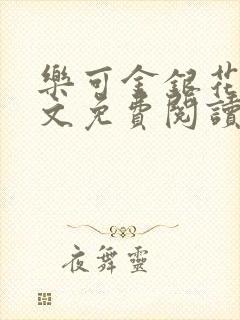 樂可金銀花
文免費閱讀
夜舞靈